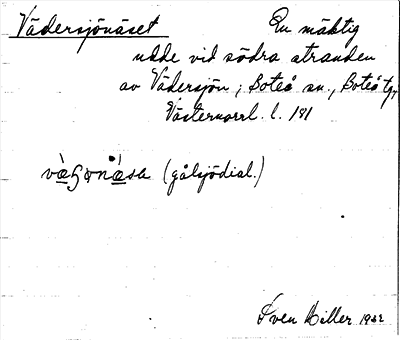 Vädersjönäset En mäktig
udde vid södra stranden
av Vädersjön; Boteå sn., Boteå tg,
Västernorrl. l. 1811
(gålsjödial.)
Sven Hiller 1932